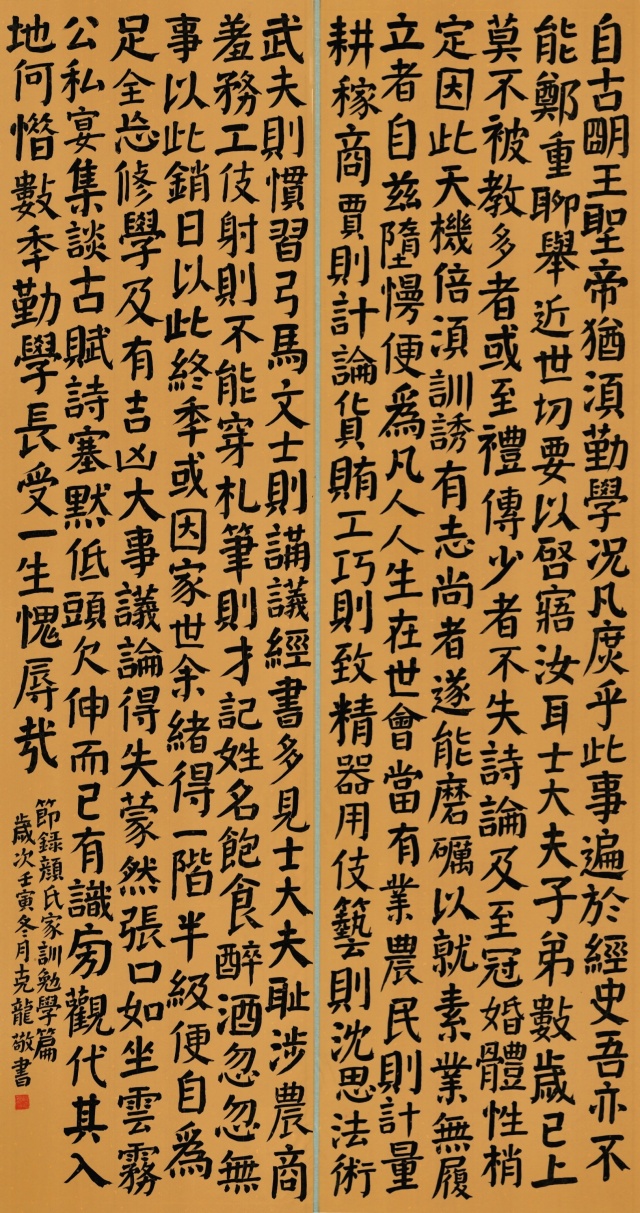 自古朙王聖帝猶須勤學况凡庶乎此事遍於經史吾亦不
能鄭重聊舉近世切要以啓寤汝耳士大夫子弟數歲已上
莫不被教多者或至禮傳少者不失詩論及至冠婚體性梢
定因此天機倍須訓誘有志尚者遂能磨礪以就素業無履
立者自兹墮慢便爲凡人人生在世會當有業農民則計量
耕稼商賈則計論貨賄工巧則致精器用伎藝則沈思法術
武夫則慣習弓馬文士則講議經書多見士大夫耻涉農商
羞務工伎射則不能穿札筆則才記姓名飽食醉酒忽忽無
事以此銷日以此終秊或因家世余緒得一階半級便自爲
足全忘修學及有吉凶大事議論得失蒙然張口如坐雲霧
公私宴集談古賦詩塞默低頭欠伸而已有識旁觀代其入
地何惜數秊勤學長受一生愧辱哉
節錄顔氏家訓勉學篇
歲次壬寅冬月克龍敬書